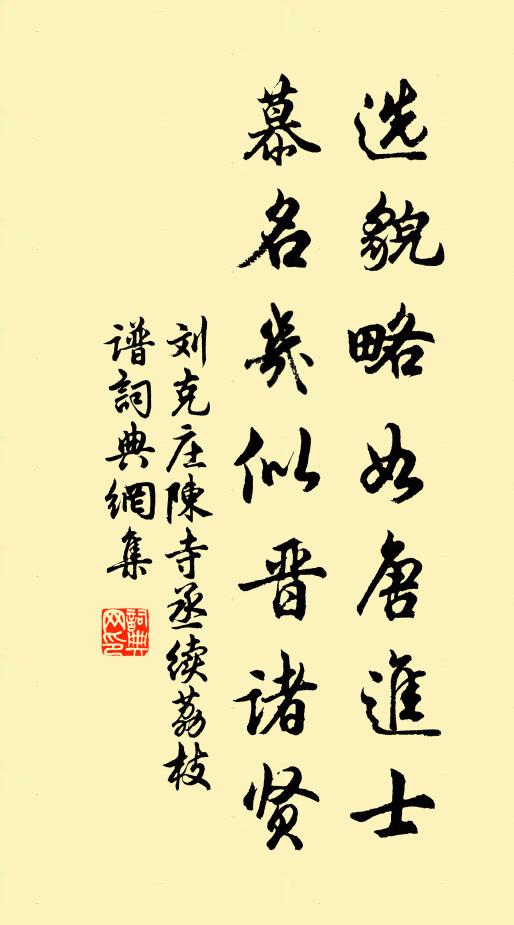 选貌略如唐進士
慕名几似晋诸贤
刘克庄陳寺丞续荔枝
谱詞典網集
詞典网印